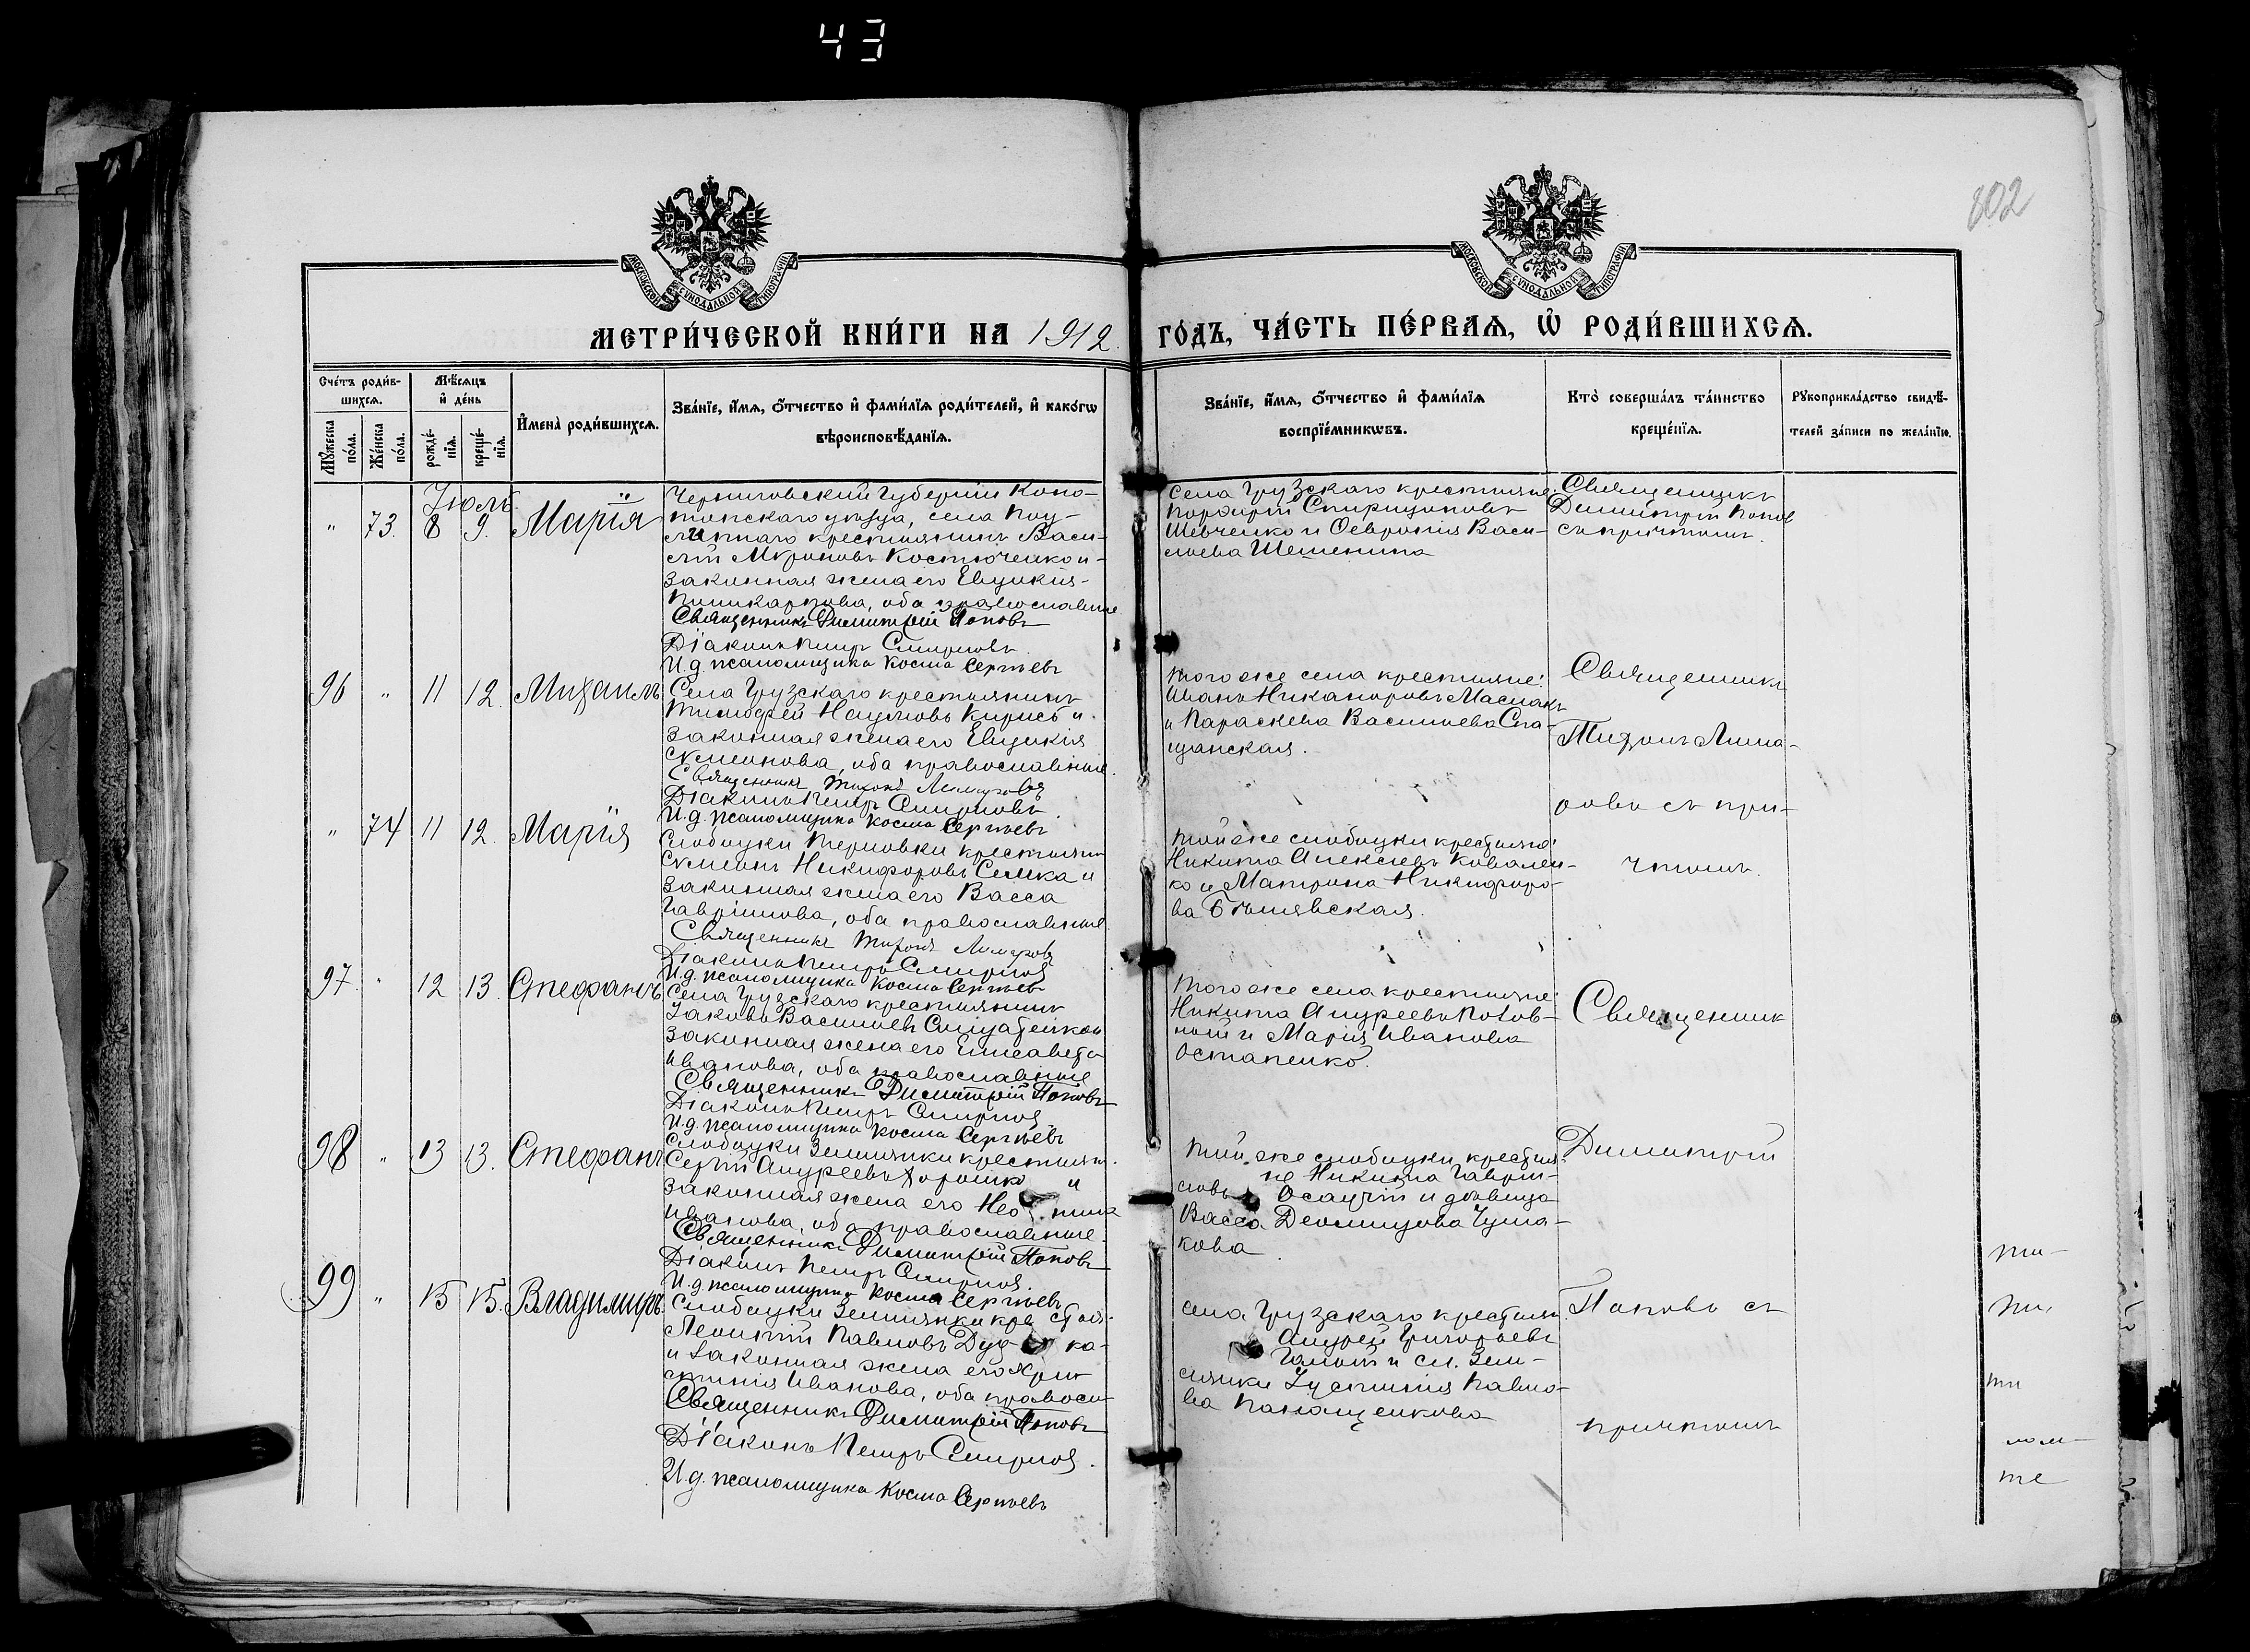 43
102
МОСКОВСКОЙ СѴНОДАЛЬНОЙ ТИПОГРАФІИ
МОСКОВСКОЙ СѴНОДАЛЬНОЙ ТИПОГРАФІИ
МЕТРИ́ЧЕСКОЙ КНИ́ГИ НА 1912 ГО́ДЪ, ЧА́СТЬ ПЕ́РВАѦ, Ѡ҆ РОДИ́ВШИХСѦ.
Сче́тъ роди́в-
шихсѧ.
Мꙋжеска
по́ла.
Же́нска
по́ла.
Мѣ́сѧцъ
и҆ де́нь
рожде́-
нїѧ.
креще́-
нїѧ.
И҆мена̀ роди́вшихсѧ.
Зва́нїе, и҆́мѧ, ѻ҆́тчество и҆ фами́лїѧ роди́телей, и҆ како́гѡ
вѣроисповѣ́данїѧ.
Зва́нїе, и҆́мѧ, ѻ҆́тчество и҆ фами́лїѧ
воспрїе́мникѡвъ.
Кто̀ соверша́лъ та́инство
креще́нїѧ.
Рꙋкоприкла́дство свидѣ́-
телей за́писи по жела́нїю.
Іюль
" 73. 8 9. Марія
Черниговский губерніи Коно-
топскаго уѣзда, села
крестьянинъ Васи-
лій Мироновъ Костюченко и
законная жена его Евдокія
Поликарпова, оба православные
Священникъ Димитрій Поповъ
Діаконъ Петръ Смирновъ
И.д. псаломщика Косма Сергѣевъ
села Грузскаго крестьяне:
Порфирій Спиридоновъ
Шевченко и Февронія Васи-
льева
Священникъ
Димитрій Попов
съ причтомъ.
96 " 11 12. Михаилъ
Села Грузскаго крестьянинъ
Тимофей Наумовъ Кирись и
законная жена его Евдокія
Симеонова, оба православные.
Священникъ Тихонъ
Діаконъ Петръ Смирновъ.
И.д. псаломщика Косма Сергѣевъ
того же села крестьяне:
Иванъ Никаноровъ Маслакъ
и Параскева Васильева Спа-
щанская.
Священникъ
Тихонъ
съ при-
чтомъ.
" 74 11 12. Марія
Слободки Терновки крестьянин
Симеонъ Никифоровъ Семка и
законная жена его Васса
Гавріилова, оба православные
Священникъ Тихонъ
Діаконъ Петръ Смирнов
И.д. псаломщика Косма Сергѣев
той же слободки крестьяне:
Никита Алексѣевъ Ковален-
ко и Матрона Никифоро-
ва
97. " 12 13 Стефанъ
Села Грузскаго крестьянинъ
Іаковъ Васильевъ
законная жена его Елисавета
Иванова, оба православные
Священникъ Димитрій Поповъ
Діаконъ Петръ Смирнов
И.д. псаломщика Косма Сергѣевъ
Того же села крестьяне:
Никита Андреевъ
и Марія Иванова
Остапенко.
Священник
98 " 13 13. Стефанъ
Слободки Землянки крестьянин
Сергій Андреевъ Хорошко и
законная жена его
Иванова, оба православные
Священникъ Димитрій Поповъ
Діаконъ Петръ Смирнов.
И.д. псаломщика Косма Сергѣевъ
той же слободки крестья-
не Никита Гаврии-
ловъ Осадчій и дѣвица
Васса Чума-
кова
Димитрій
99 " 15 15. Владимиръ
Слободки Землянки крестьян.
Леонтій Павловъ
и законная жена его Хри-
стина Иванова, оба правосл.
Священникъ Димитрій Поповъ
Діаконъ Петръ Смирнов.
И.д. псаломщика Косма Сергѣевъ
села Грузскаго крестьян.
Андрей Григорьевъ
и сл. Зем-
лянки Іустинія Павло-
ва Панащенкова
Поповъ съ
причтомъ